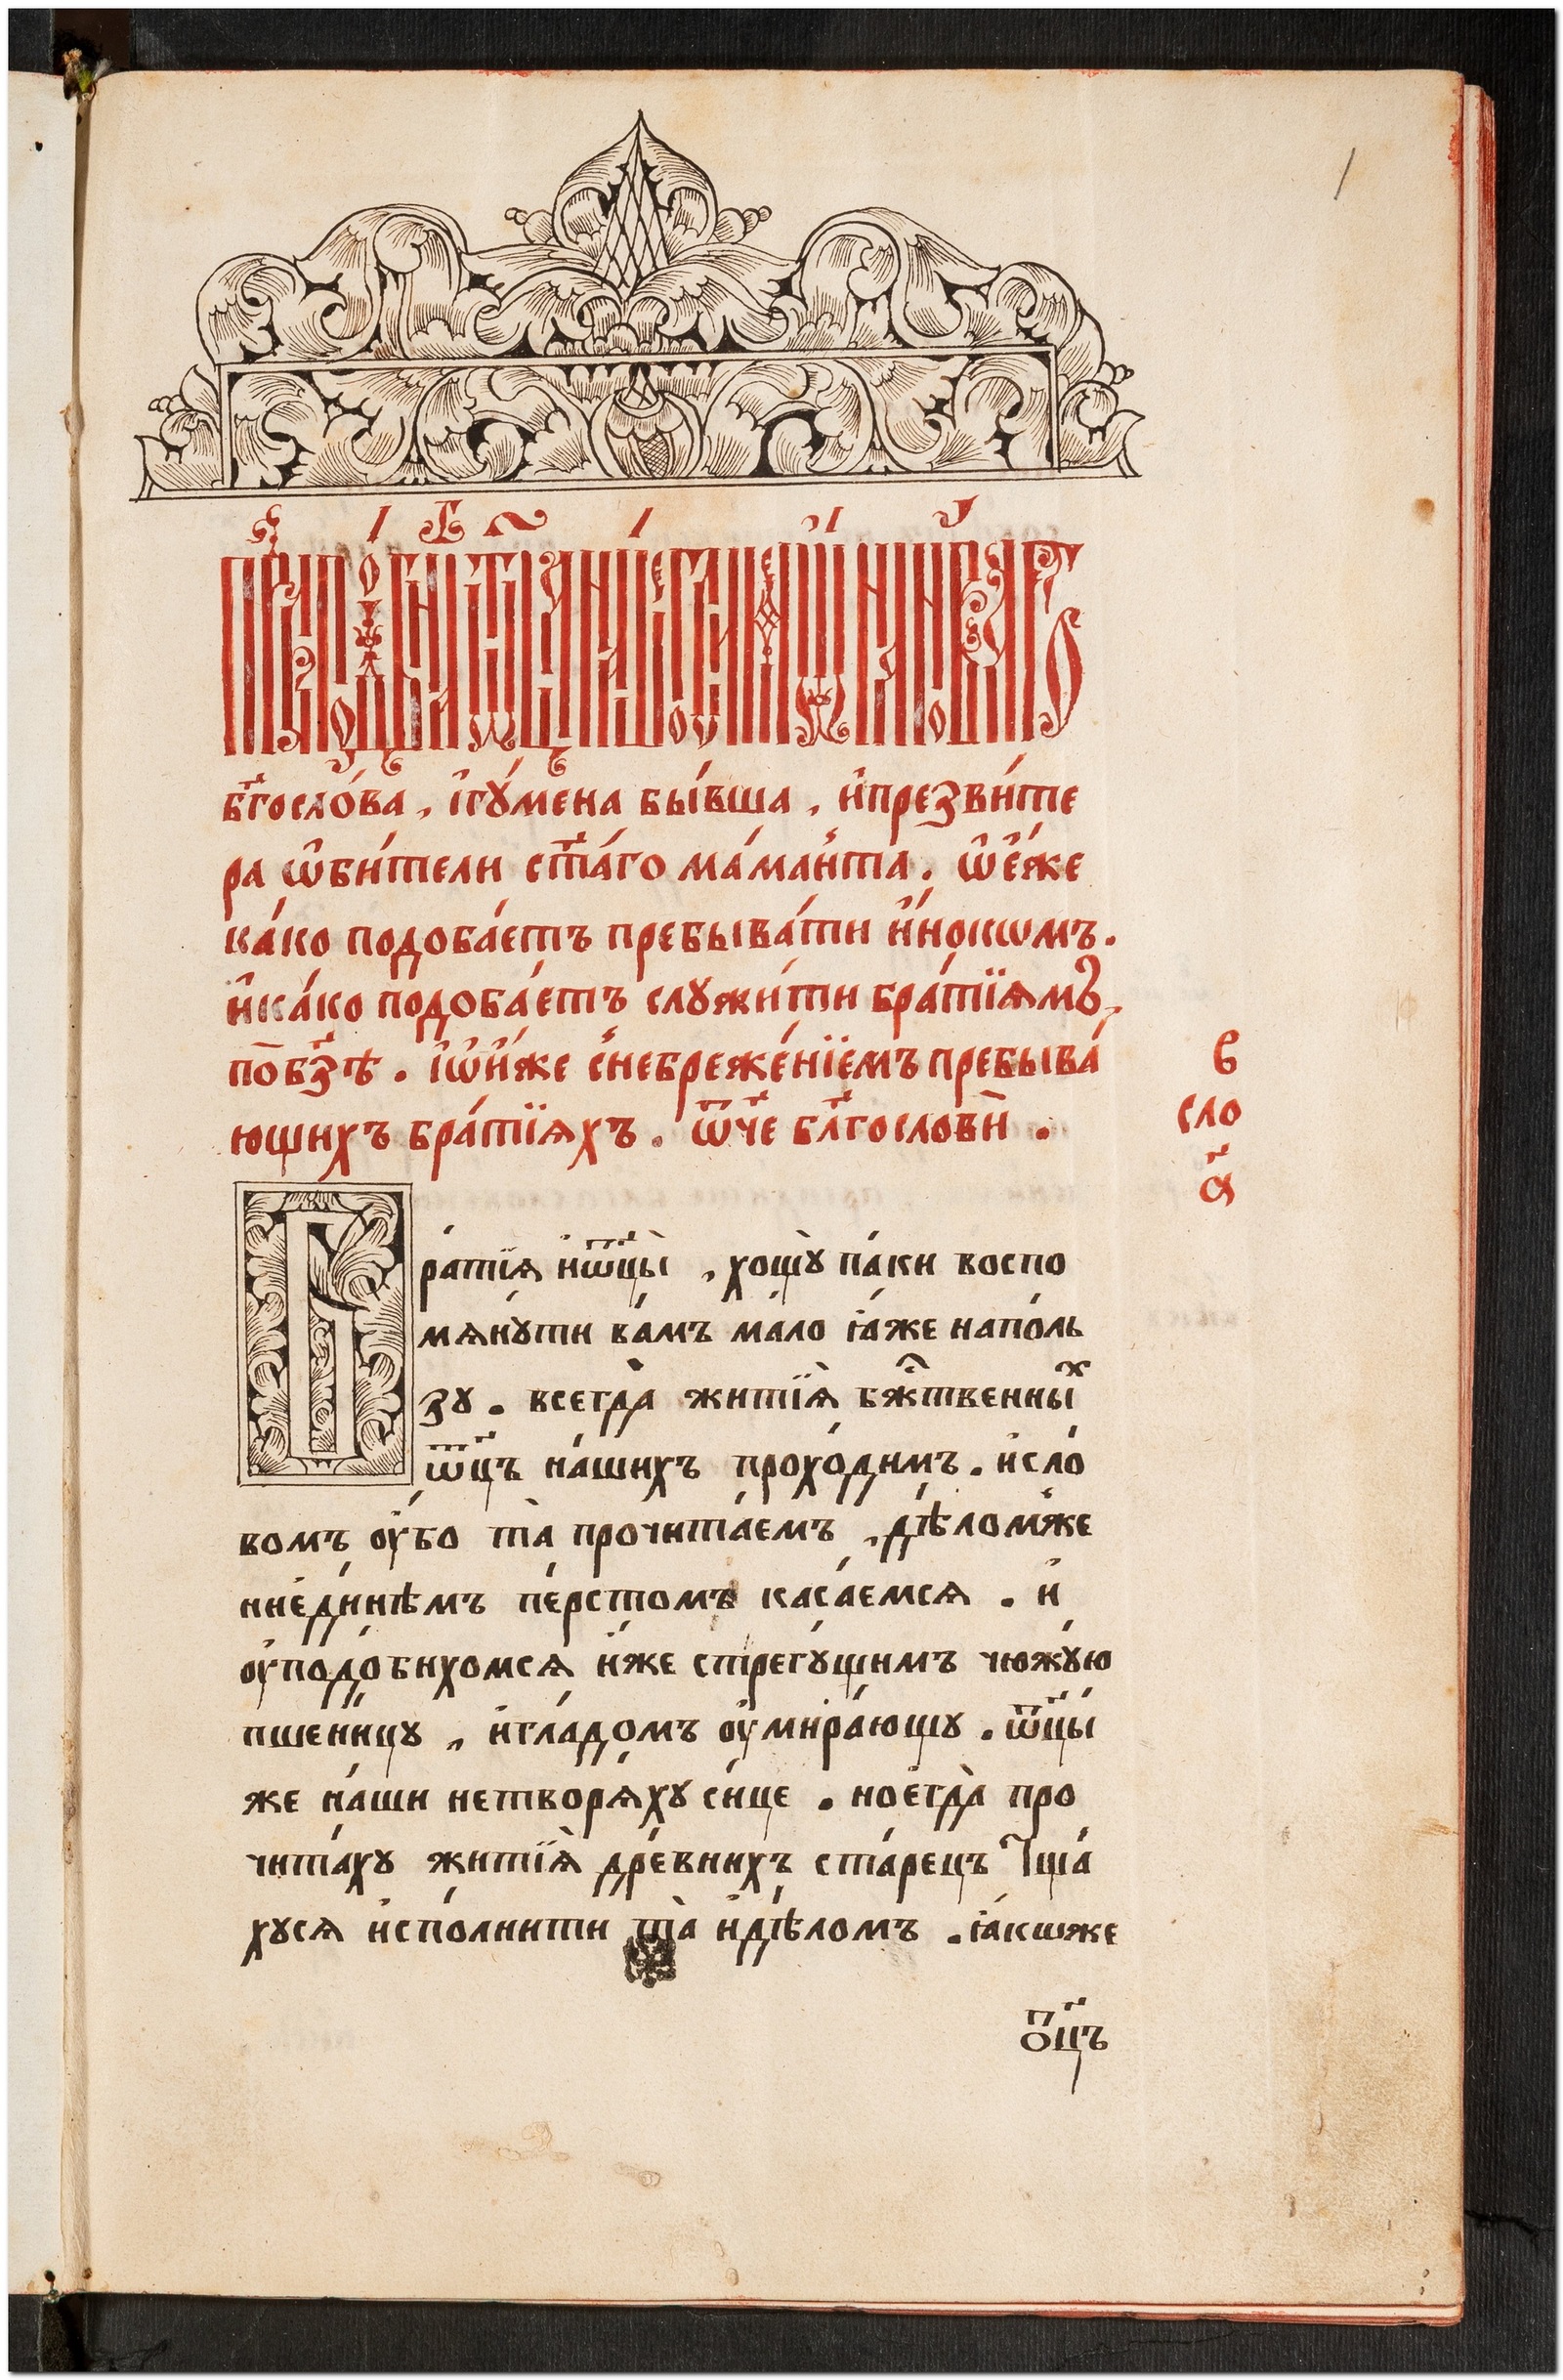 бг҃осло́ва , і҆гꙋ́мена бы́вша , и҆презви́те
ра ѡ҆би́тели ст҃а́го ма́манта . ѡ҆е҆́же
ка́ко подоба́етъ пребыва́ти и҆́нокѡмъ .
и҆ка́ко подоба́етъ слꙋжи́ти бра́тїѧмъ ,
по бз҃ѣ . і҆ѡ҆и҆́же с̾небреже́нїемъ пребыва́
ющихъ бра́тїѧхъ . ѿч҃е бл҃гословѝ .
в
сло
а҃
ра́тїѧ и҆ѿц҃ы̀ , хощꙋ̀ па́ки воспо
мѧнꙋ́ти ва́мъ ма́ло ꙗ҆́же напо́ль
зꙋ . всегда̀ житїѧ̀ бж҃твенныⷯ
ѿц҃ъ на́шихъ прохо́димъ . и҆сло́
вомъ ᲂу҆́бо та̀ прочита́емъ , дѣ́лом̾же
ниеди́нѣмъ пе́рстомъ каса́емсѧ . и҆
ᲂу҆подо́бихомсѧ и҆́же стрегꙋ́щимъ чюжꙋ́ю
пшени́цꙋ , и҆гла́домъ ᲂу҆мира́ющꙋ . ѿц҃ы́
же на́ши нетворѧ́хꙋ си́це . ноегда̀ про
чита́хꙋ житїѧ̀ дре́внихъ ста́рецъ тща́
хꙋсѧ и҆спо́лнити та̀ и҆дѣ́ломъ . ꙗ҆́кѡже
ѻ҃ц҃ъ